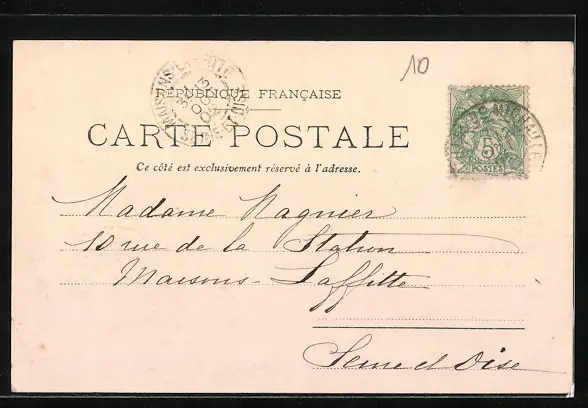 10
RÉPUBLIQUE FRANÇAISE
CARTE POSTALE
Ce côté est exclusivement réservé à l'adresse.
5c
POSTES
Madame Magnier
10 rue de la Station
Maisons-Laffitte
Seine et Oise